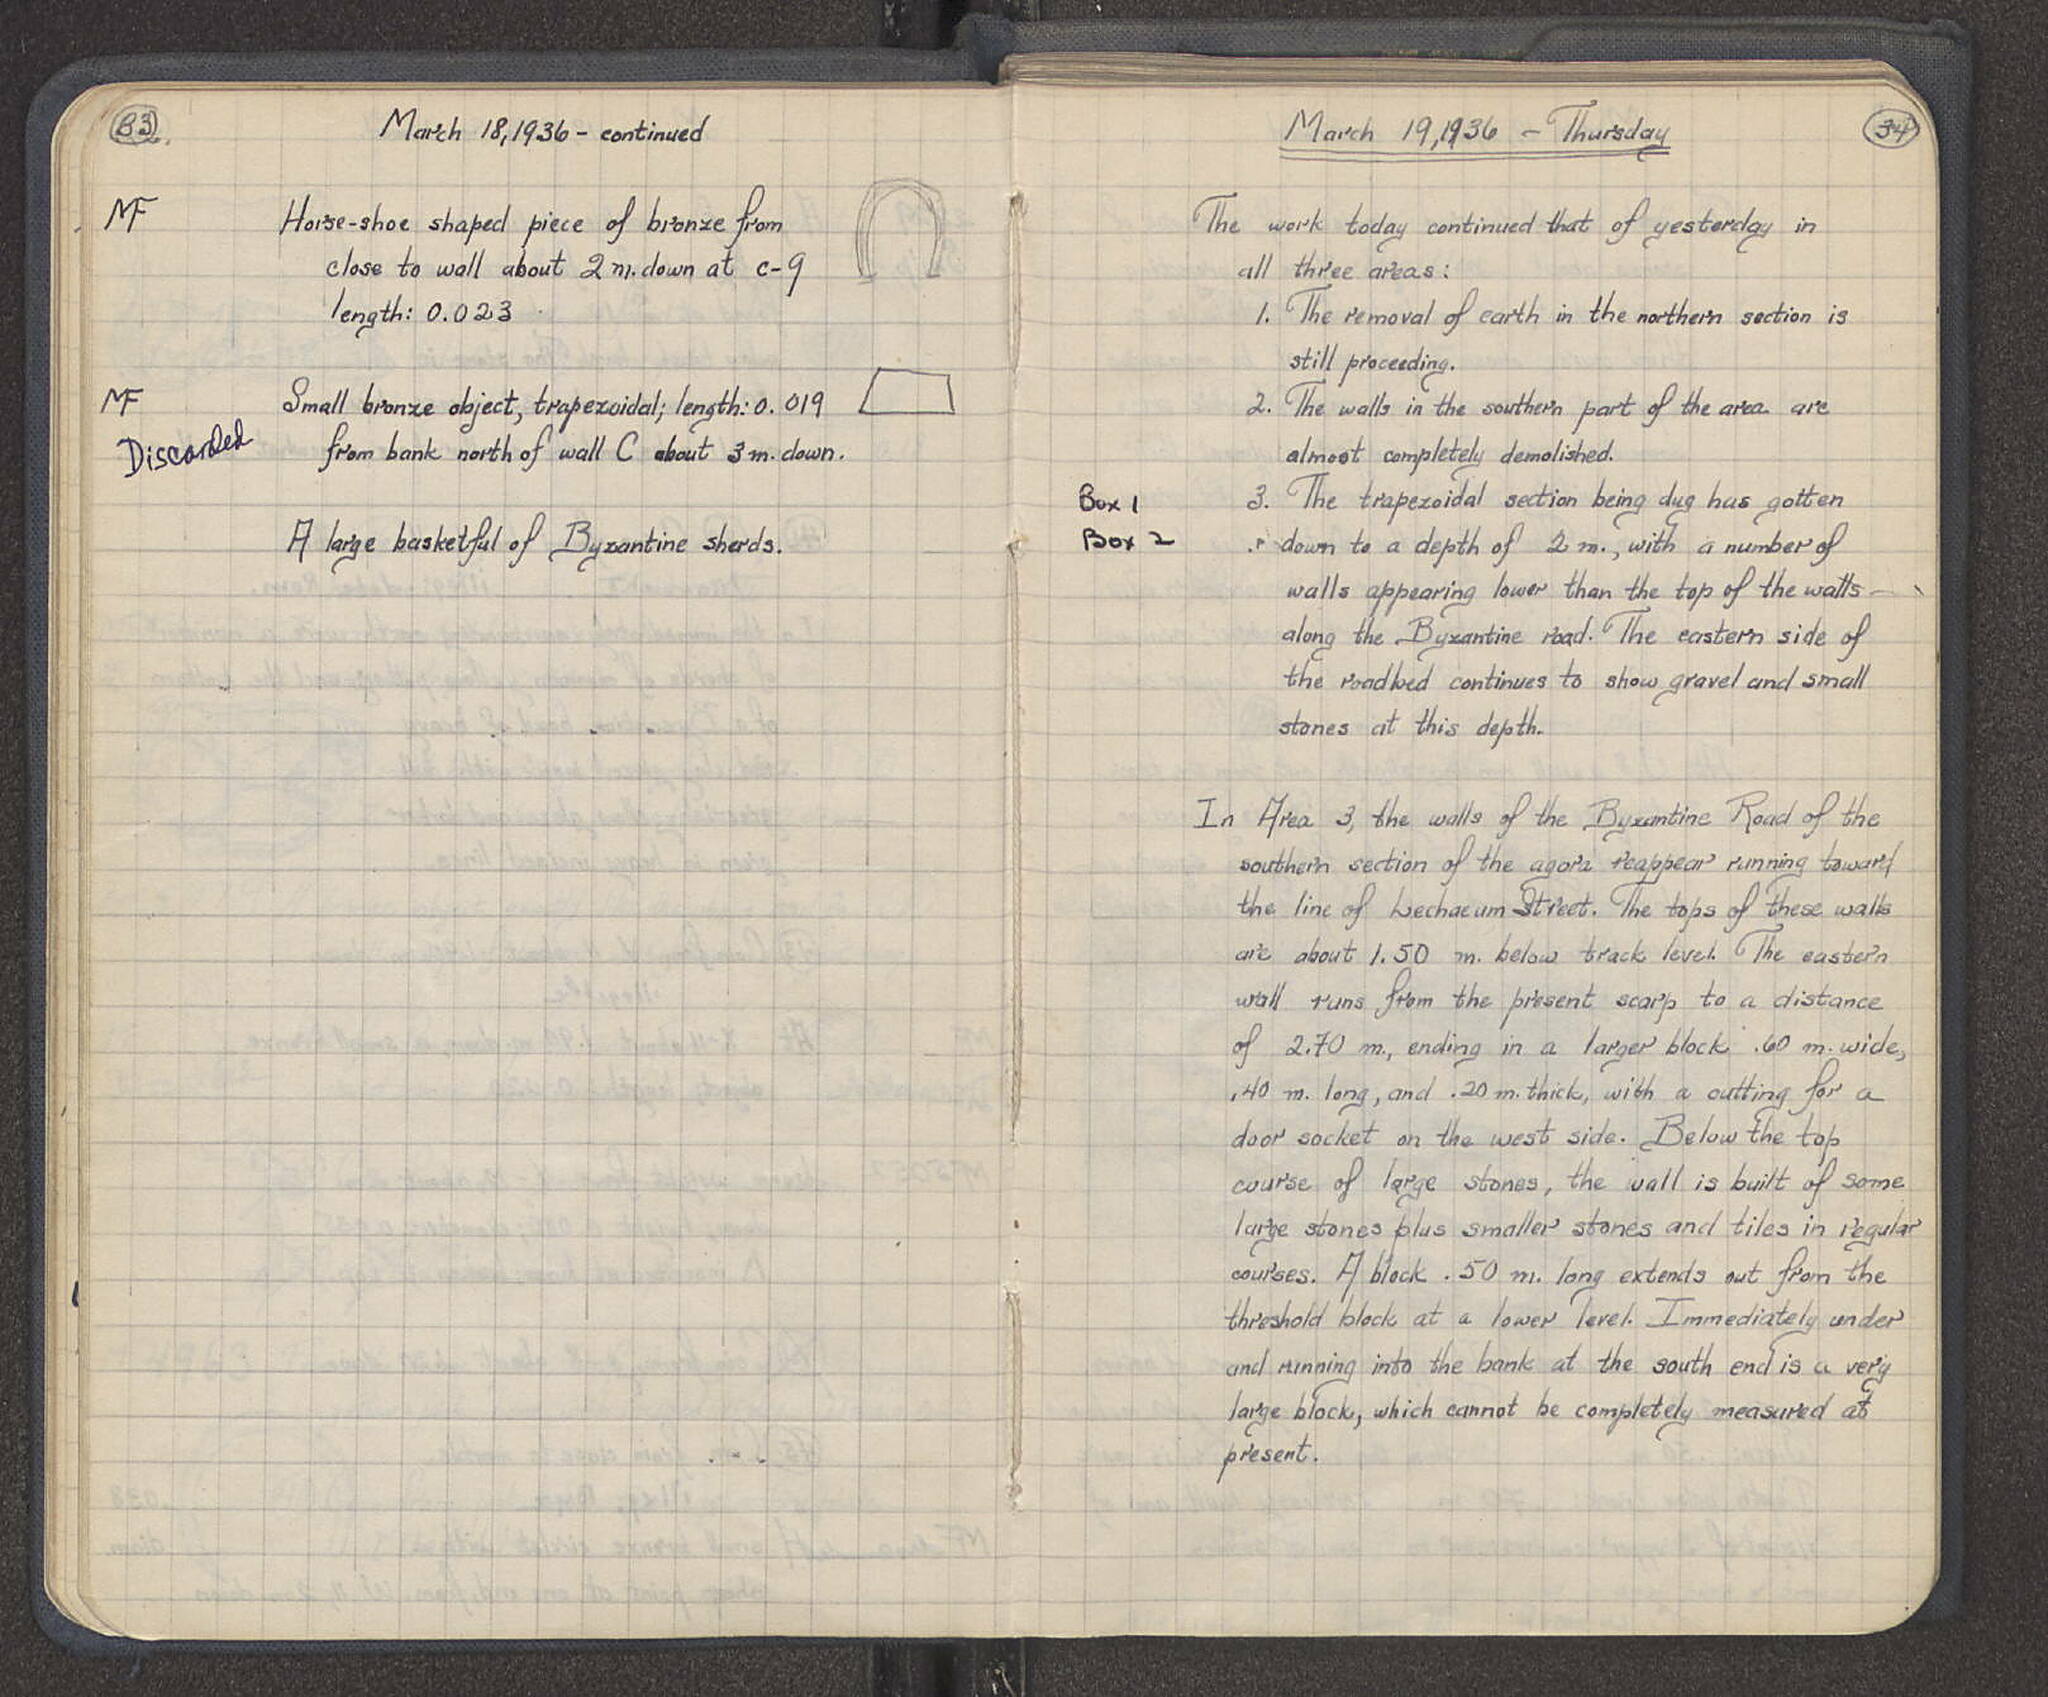 33
March 18, 1936 – continued
MF
Horse-shoe shaped piece of bronze from
close to wall about 2 m. down at c-9
length: 0.023
MF
Small bronze object, trapezoidal; length: 0.019
Discarded
from bank north of wall C about 3 m. down.
A large basketful of Byzantine sherds.
March 19, 1936 – Thursday
34
The work today continued that of yesterday in
all three areas:
1. The removal of earth in the northern section is
still proceeding.
2. The walls in the southern part of the area are
almost completely demolished.
Box 1
3. The trapezoidal section being dug has gotten
Box 2
down to a depth of 2 m., with a number of
walls appearing lower than the top of the walls
along the Byzantine road. The eastern side of
the roadbed continues to show gravel and small
stones at this depth.
In Area 3, the walls of the Byzantine Road of the
southern section of the agora reappear running toward
the line of Lechaeum Street. The tops of these walls
are about 1.50 m. below track level. The eastern
wall runs from the present scarp to a distance
of 2.70 m., ending in a larger block .60 m. wide,
.40 m. long, and .20 m. thick, with a cutting for a
door socket on the west side. Below the top
course of large stones, the wall is built of some
large stones plus smaller stones and tiles in regular
courses. A block .50 m. long extends out from the
threshold block at a lower level. Immediately under
and running into the bank at the south end is a very
large block, which cannot be completely measured at
present.